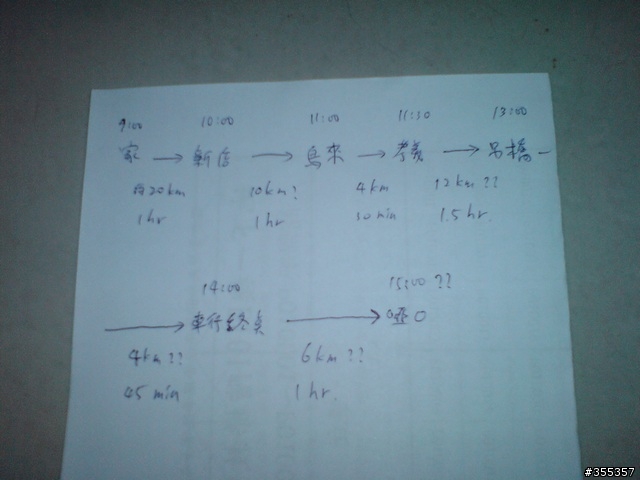 9:00 10:00 11:00 11:30 13:00
家 → 新店 → 烏來 → 孝義 → 吊橋 —
約20km 10km? 4km 12km??
1hr 1hr 30min 1.5hr.
14:00 15:00 ??
→ 車行終點 → 啞口
4km?? 6km??
45 min 1hr.
#355357